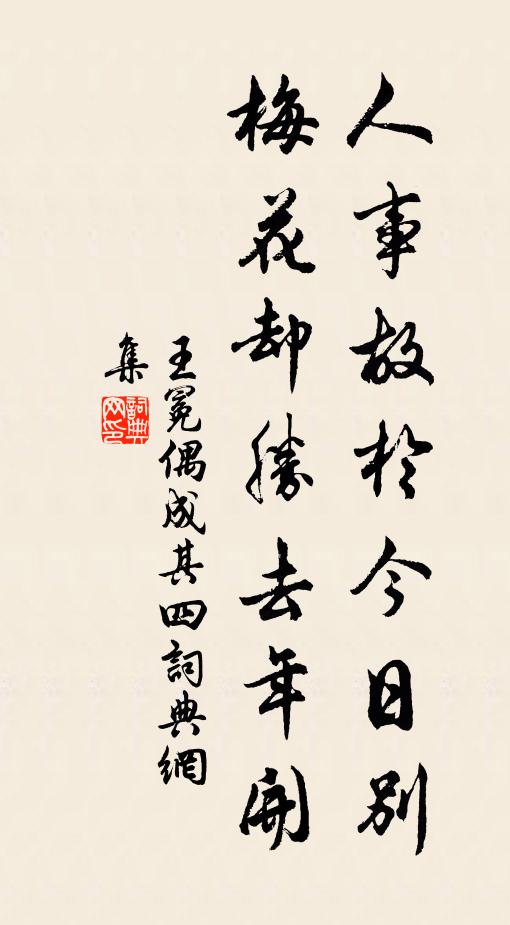 人事故於今日別
梅花卻勝去年開
王冕偶成其四詞典網
集
詞典
網印